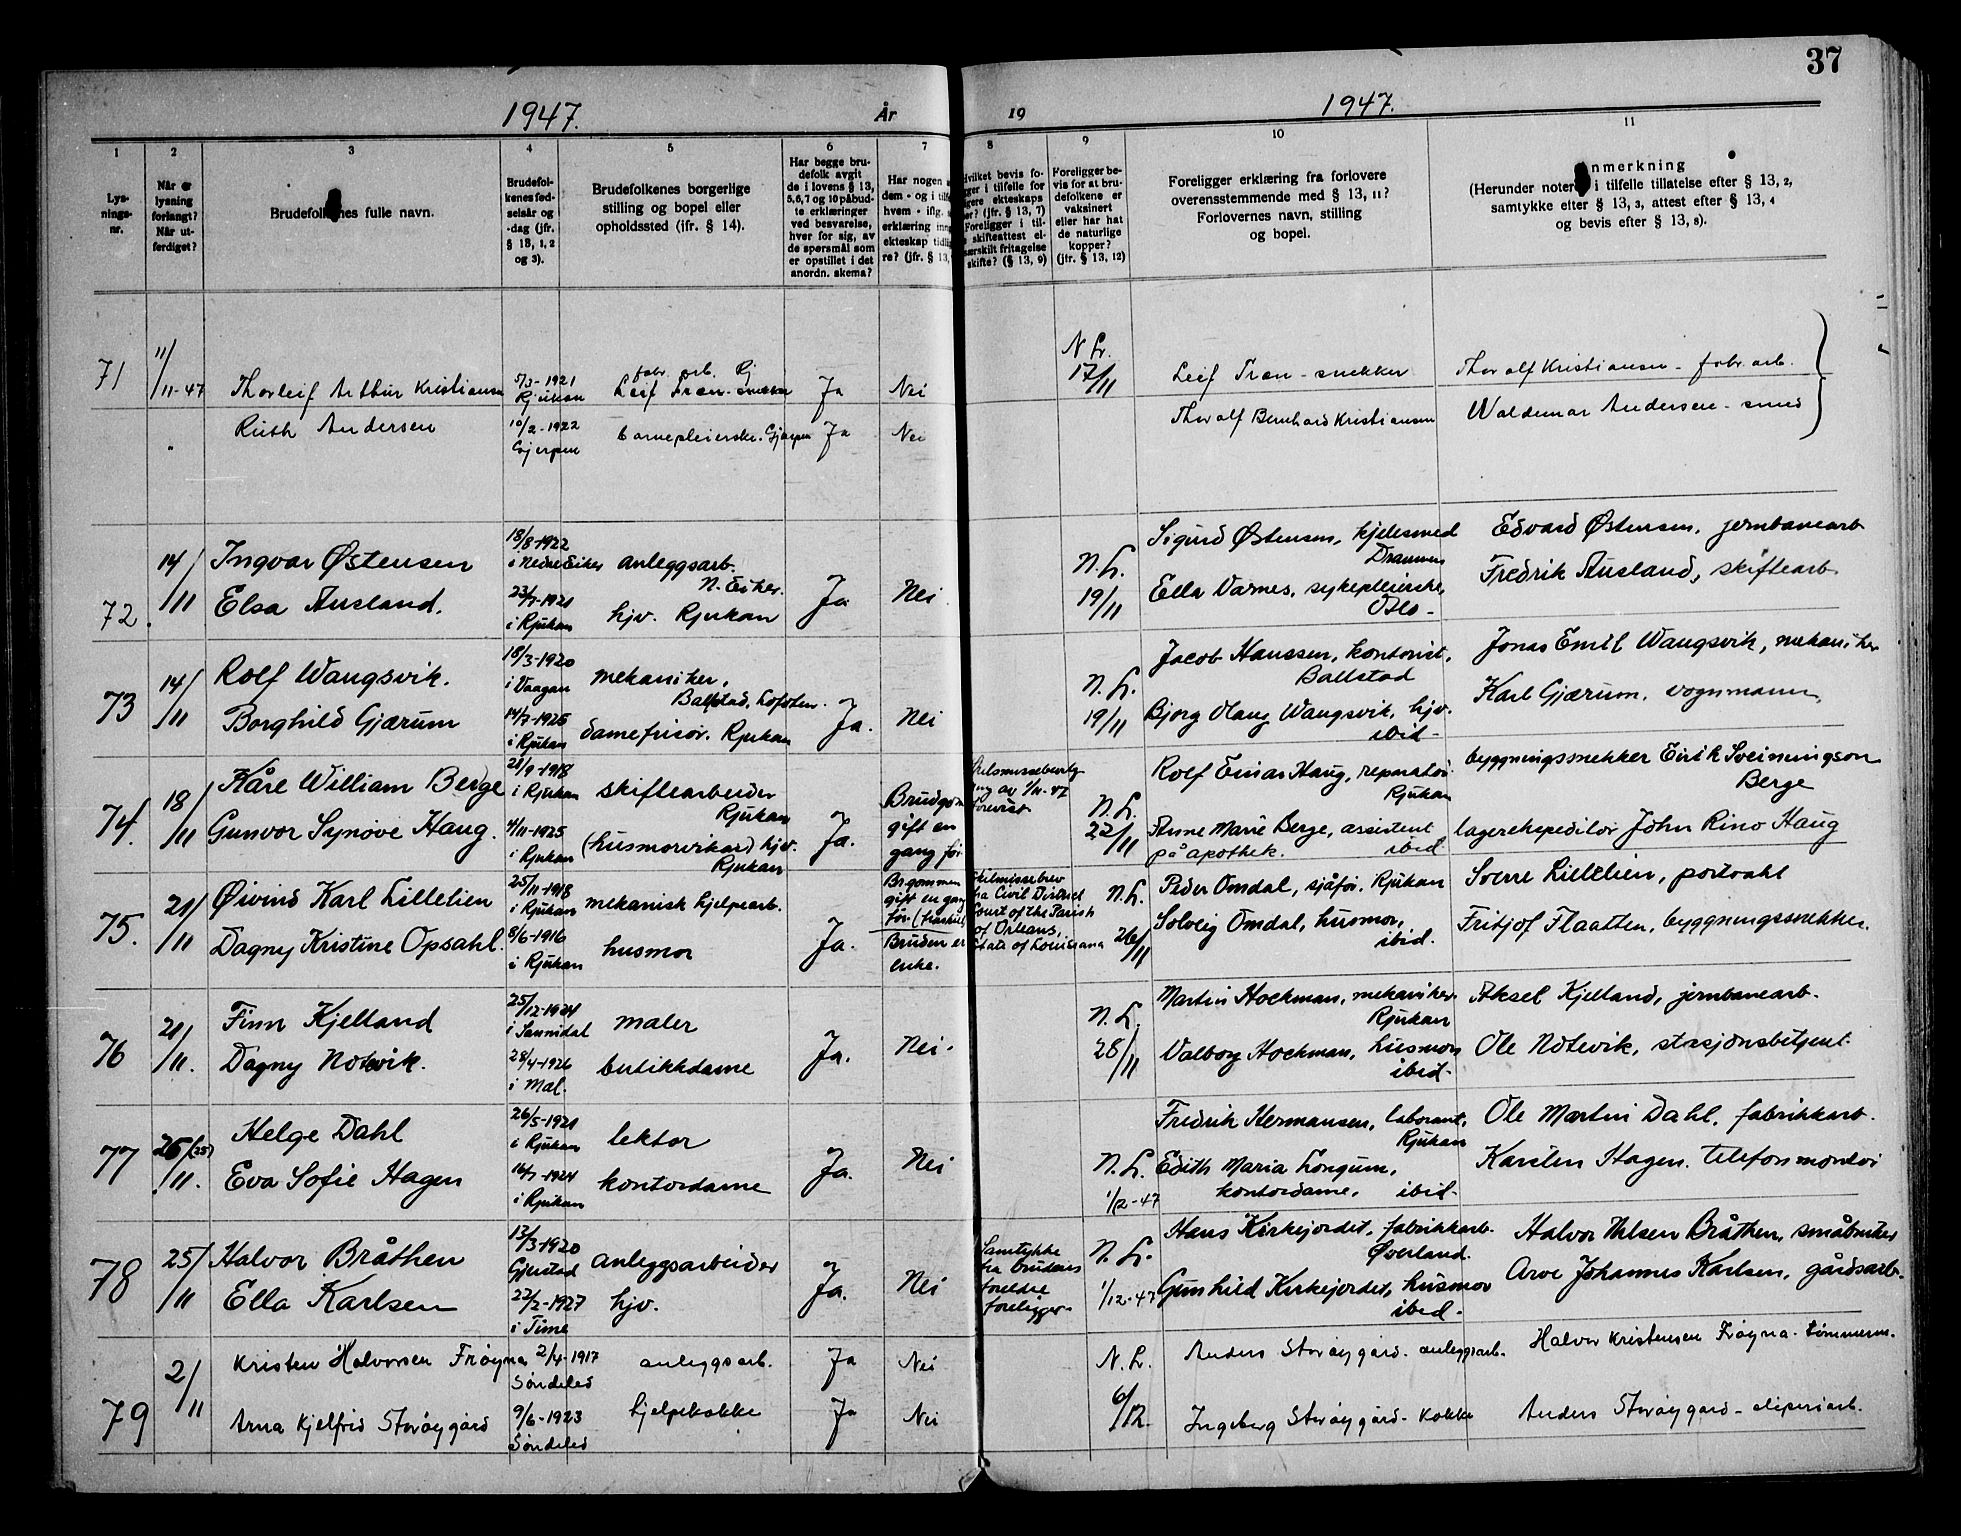 37
1947. År
19 1947.
1 2 3 4 5 6 7 8 9 10 11
Lys-
nings-
nr.
Når er
lysning
forlangt?
Når ut-
ferdiget?
nes fulle navn.
Brudefol-
kenes fød-
selsår og
-dag (jfr.
§ 13, 1, 2
og 3).
Brudefolkenes borgerlige
stilling og bopel eller
opholdssted (jfr. § 14).
Har begge bru-
defolk avgit
de i lovens § 13,
5, 6, 7 og 10 påbud-
te erklæringer
ved besvarelse,
hver for sig, av
de spørsmål som
er opstillet i det
anordn. skema?
Har nogen
dem - og i tilf
hvem - iflg.
erklæring inng
ekteskap tidli
re? (jfr. § 13,
Hvilket bevis fo-
i tilfelle for
gere ekteskaps
(jfr. § 13, 7)
Foreligger i til-
skifteattest el-
særskilt fritagelse
skifte? (§ 13, 9)
Foreligger be-
vis for at bru-
defolkene er
vaksinert
eller har hat
de naturlige
kopper?
(jfr. § 13, 12)
Foreligger erklæring fra forlovere
overensstemmende med § 13, 11?
Forlovernes navn, stilling
og bopel.
nmerkning
(Herunder noteres i tilfelle tillatelse efter § 13, 2,
samtykke efter § 13, 3, attest efter § 13, 4
og bevis efter § 13, 8).
71 11/11-47 Thorleif Arthur Kristiansen 5/3-1921 Rjukan fabr. arb. Rj Ja Nei
Leif Tran - snekker
N.L. 17/11 Leif Tran - snekker Thoralf Kristiansen - fabr. arb.
Ruth Andersen 10/2-1922 Gjerpen barnepleierske. Gjerpen Ja Nei
Thoralf Bernhard Kristiansen Waldemar Andersen - smed
72. 14/11 Ingvar Østensen 18/8-1922 i Nedre Eiker anleggsarb. N. Eiker.
Elsa Ausland. 23/7-1921 i Rjukan hjv. Rjukan Ja Nei
N.L. 19/11 Sigurd Østensen, kjelesmed Drammen Edvard Østensen, jernbanearb
Ella Varnes, sykepleierske, Oslo - Fredrik Ausland, skiftearb
73 14/11 Rolf Wangsvik. 18/3-1920 i Vaagan mekaniker, Ballstad, Lofoten.
Borghild Gjærum 14/7-1925 i Rjukan damefrisør. Rjukan Ja. Nei
N.L. 19/11 Jacob Hanssen, kontorist, Ballstad Jonas Emil Wangsvik, mekaniker
Bjorg Olaug Wangsvik, hjv. ibid - Karl Gjærum, vognmann
74. 18/11 Kåre William Berge 21/9-1918 i Rjukan skiftearbeider Rjukan
Gunvor Synøve Haug. 4/11-1925 i Rjukan (husmorvikar) hjv. Rjukan Ja.
Brudgom gift en gang før
av 1/11-47 forevist
N.L. 22/11 Rolf Einar Haug, reparatør Rjukan byggningssnekker Eirik Sveinungson Berge
Anne Marie Berge, assistent på apothek. ibid lagerekspeditør John Rino Haug
75. 21/11 Øivind Karl Lillelien 25/11-1918 i Rjukan mekanisk hjelpearb.
Dagny Kristine Opsahl. 8/6-1916 i Rjukan husmor Ja.
Brgommen gift en gang før.
Bruden er enke.
Skilmissebrev fra Civil District Court of the Parish of Orleans, State of Louisiana
N.L. 26/11 Peder Omdal, sjåfør. Rjukan Sverre Lillelien, portvakt
Solveig Omdal, husmor, ibid. Fritjof Flaatten, byggningssnekker.
76 21/11. Finn Kjelland 25/12-1924 i Sannidal maler
Dagny Notevik. 28/4-1926 i Mæl. butikkdame Ja. Nei.
N.L. 28/11 Martin Hockman, mekaniker Rjukan Aksel Kjelland, jernbanearb.
Valborg Hockman, husmor ibid. Ole Notevik, stasjonsbetjent.
77 26(25)/11. Helge Dahl 26/5-1921 i Rjukan lektor
Eva Sofie Hagen 16/7-1924 i Rjukan kontordame Ja. Nei
N.L. 1/12-47 Fredrik Hermansen, laborant, Rjukan Ole Martin Dahl, fabrikkarb.
Edith Maria Longum, kontordame, ibid. Karsten Hagen. telefonmontør
78 25/11 Halvor Bråthen 13/3-1920 Gjerstad anleggsarbeider
Ella Karlsen 22/2-1927 i Time hjv. Ja. Nei
Samtykke fra brudens foreldre foreligger.
N.L. 1/12-47 Hans Kirkejordet, fabrikkarb. Øverland. Halvor Nilsen Bråthen, småbruker
Gunhild Kirkejordet, husmor ibid. Arve Johannes Karlsen, gårdsarb.
79 2/11 Kristen Halvorsen Frøyna 2/4-1917 Søndeled anleggsarb. Ja Nei
N.L. 6/12. Anders Storøygård - anleggsarb. Halvor Kristensen Frøyna - tømmerm.
Arna Kjelfrid Storøygård 9/6-1923 Søndeled hjelpekokke Ja Nei
Ingeborg Storøygård - kokke Anders Storøygård - sliperiarb.